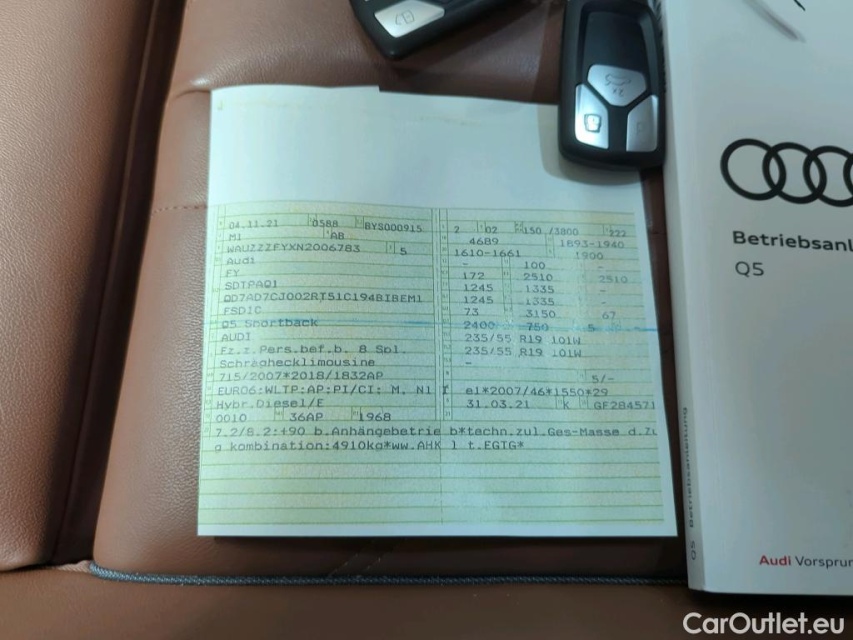 04.11.21 0588 BYS000915 2 02 150 /3800 222
M1 AB 4689 1893-1940
WAUZZZFYXN2006783 5 1610-1661 1900
Audi - 100 -
FY 172 2510 2510
SDTPAQ1 1245 1335 -
QD7AD7CJ002RT51C194BIBEM1 1245 1335 -
FSDIC 73 3150 67
Q5 Sportback 2400 750 5
AUDI 235/55 R19 101W
Fz.z.Pers.bef.b. 8 Spl. 235/55 R19 101W
Schräghecklimousine -
715/2007*2018/1832AP 5/-
EURO6:WLTP:AP:PI/CI: M, N1 I e1*2007/46*1550*29
Hybr.Diesel/E 31.03.21 K GF284571
0010 36AP 1968
7.2/8.2:+90 b.Anhängebetrie b*techn.zul.Ges-Masse d.Zu
g kombination:4910kg*ww.AHK l t.EGTG*
Betriebsanl
Q5
Q5 Betriebsanleitung
Audi Vorsprun
CarOutlet.eu